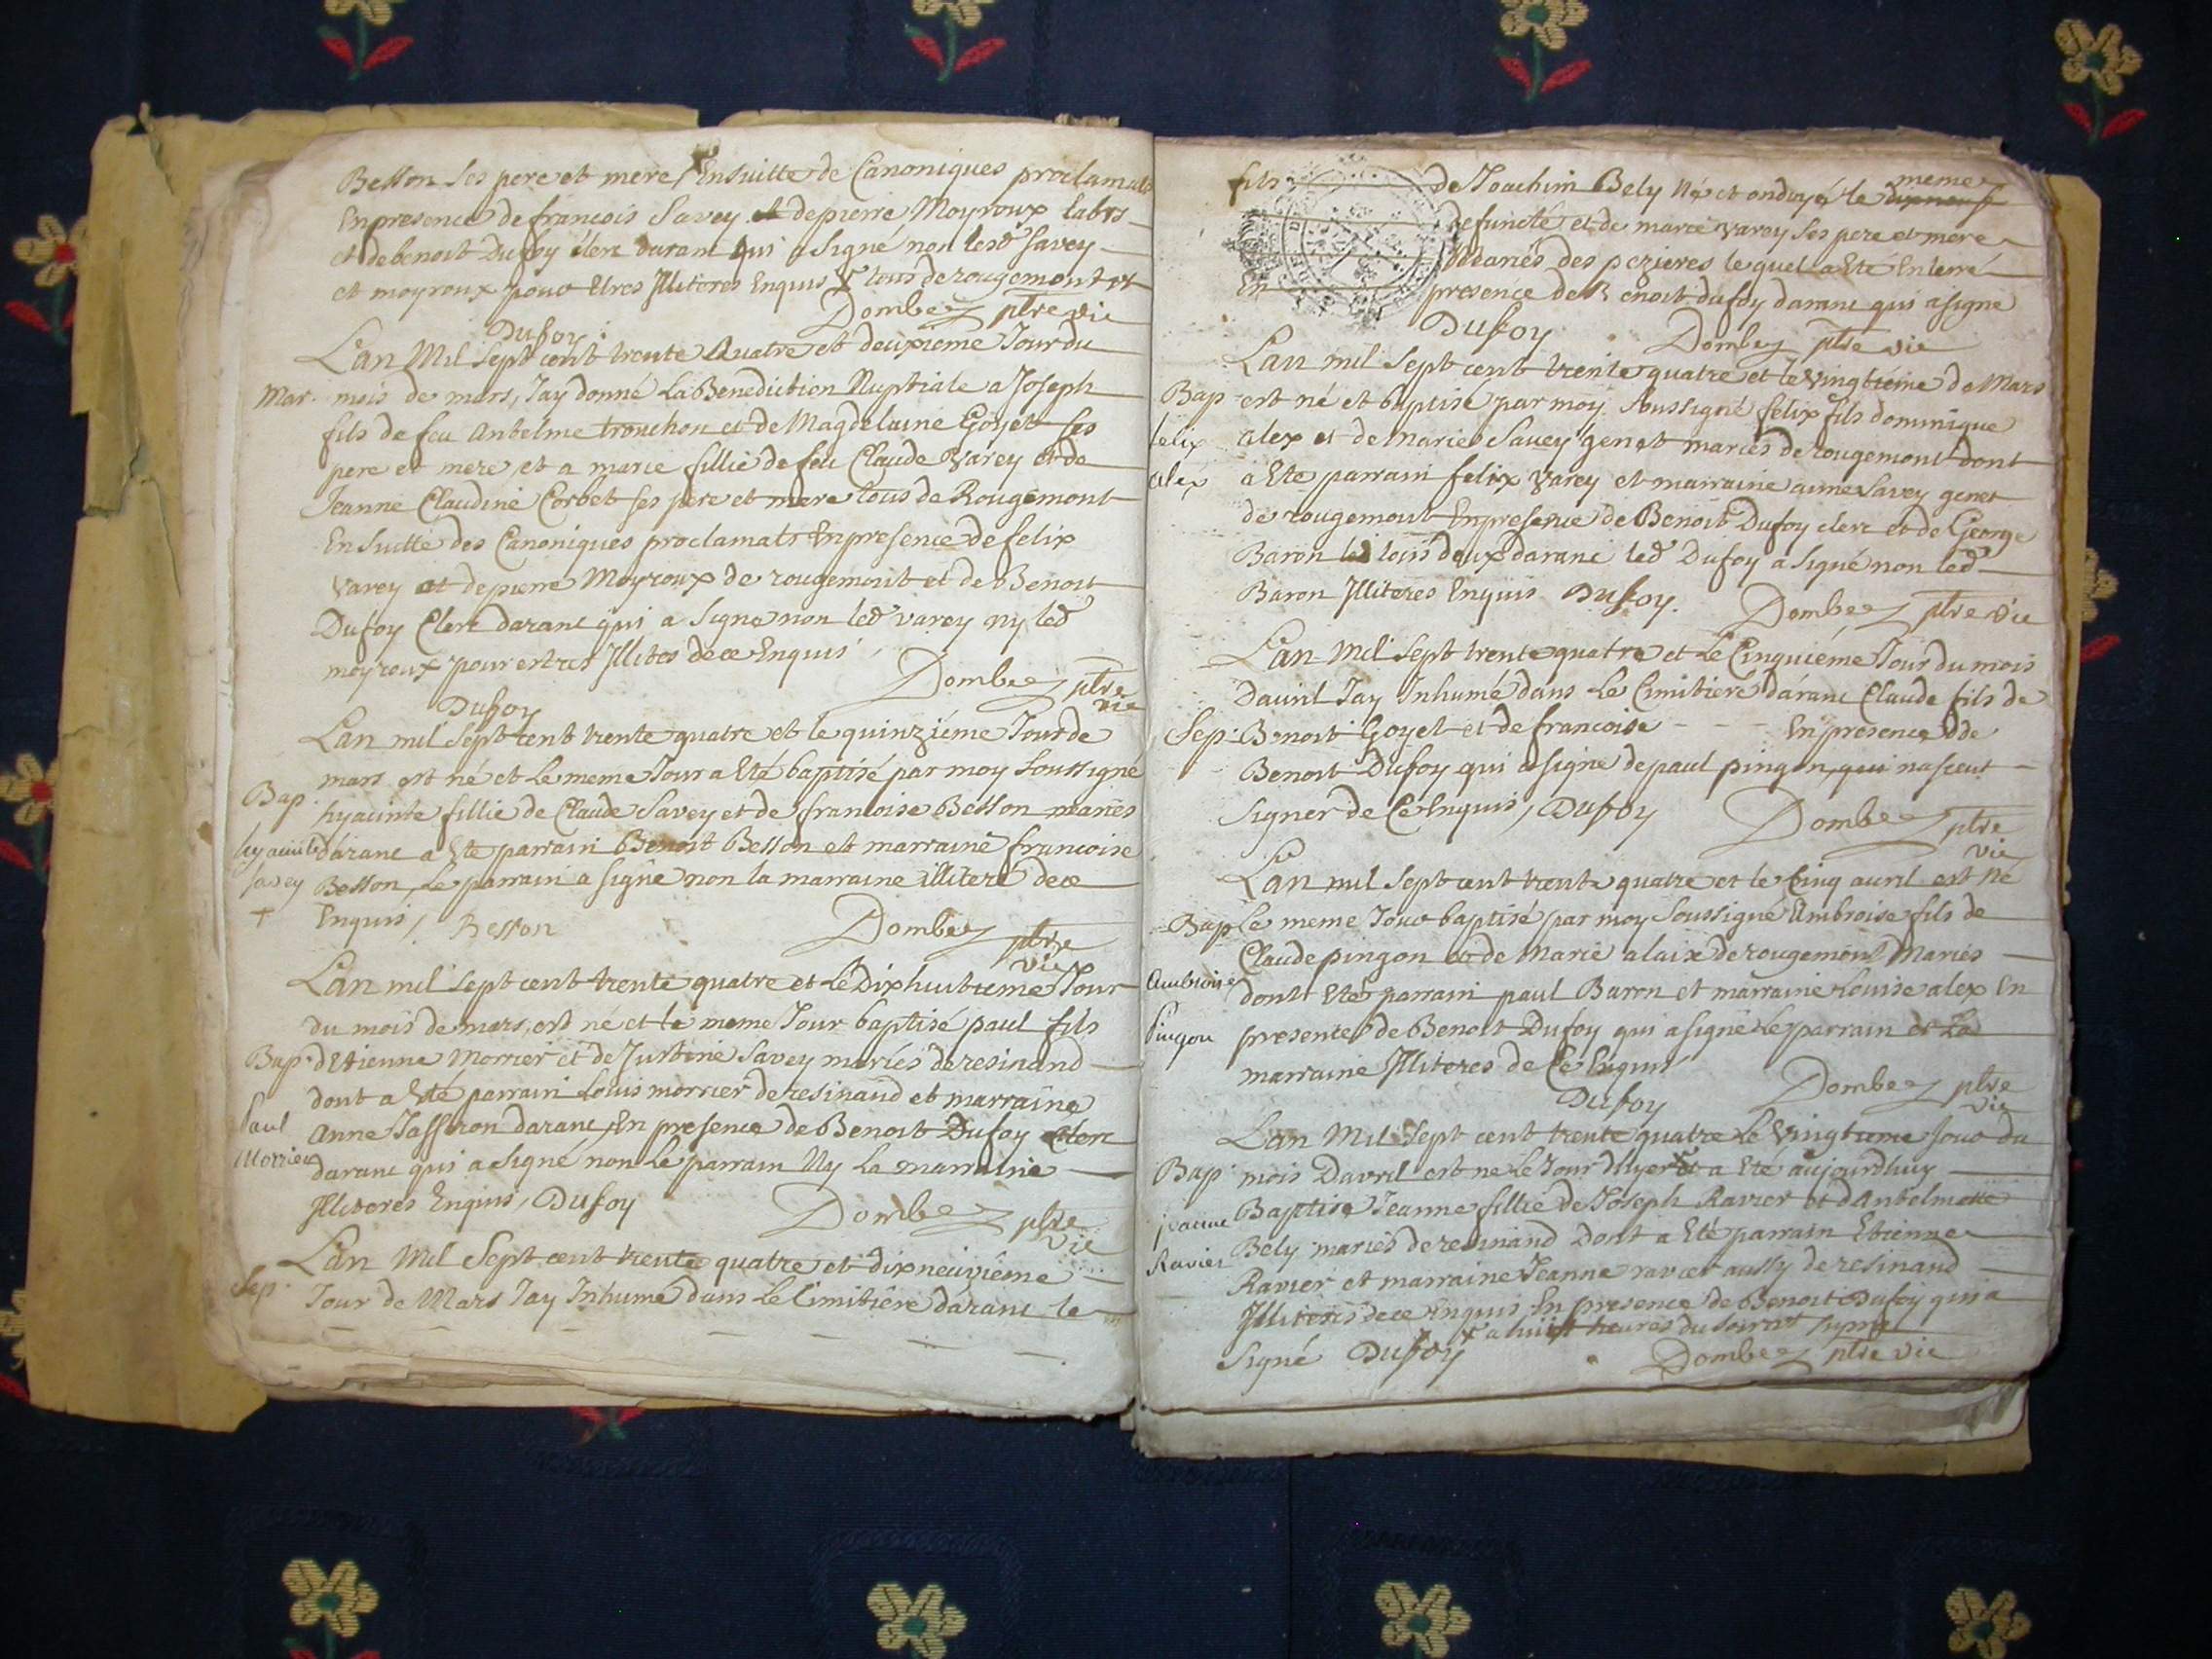 Besson ses pere et mere Ensuitte de Canoniques proclamats
Enpresence de francois Savey et de pierre Moyroux labrs
et de benoit Dufoy clerc daranc qui a signé non lesd savey
et moyroux pour Etres Illiteres Enquis tous de rougemont
Dufoy Dombey ptre vic
L'an Mil sept cent trente Quatre et deuxieme Jour du
Mar. mois de mars, Jay donné La Benediction Nuptiale a Joseph
fils de feu Anthelme tronchon et de Magdelaine Goyet ses
pere et mere, et a marie fillie de feu Claude Varey et de
Jeanne Claudine Corbet ses pere et mere tous de Rougemont
Ensuitte des Canoniques proclamats Enpresence de felix
Varey et de pierre Moyroux de rougemont et de Benoit
Dufoy Clerc daranc qui a signe non led varey ny led
moyroux pour estres Illites de ce Enquis
Dufoy Dombey ptre vic
Lan mil sept cent trente quatre et le quinziéme Jour de
mars est né et Le meme Jour a Eté baptisé par moy soussigné
Bap. hyacinte fillie de Claude Savey et de francoise Besson mariés
hyacinte daranc a Ete parrain Benoit Besson et marraine francoise
savey Besson, Le parrain a signé non la marraine illitere de ce
+ Enquis / Besson Dombey ptre vic
Lan mil sept cent trente quatre et Le Dixhuitieme Jour
du mois de mars, est né et le meme Jour baptisé paul fils
Bap. d'Etienne Morrier et de Justine Savey mariés de resinand
dont a Eté parrain Louis morrier de resinand et marraine
Paul Anne Jasseron daranc, En presence de Benoit Dufoy clerc
Morrier daranc qui a signé non Le parrain Ny La marraine
Illiteres Enquis, Dufoy Dombey ptre vic
Lan Mil Sept cent trente quatre et dixneuviême
Sep. Jour de Mars Jay Inhumé dans Le Cimitiére daranc le
fils de Joachim Bely Né et ondoyé le dixneuf meme
defuncté et de marie varey ses pere et mere
Mariés des pezieres lequel a Eté Enterré
En presence de Benoit dufoy daranc qui a signe
Dufoy Dombey ptre vic
Lan mil sept cent trente quatre et le vingtiéme de Mars
Bap est né et baptisé par moy soussigné felix fils dominique
felix alex et de marie Savey genet mariés de rougemont dont
alex a Ete parrain felix varey et marraine anne Savey genet
de rougemont Enpresence de Benoit Dufoy clerc et de George
Baron tous deux daranc led Dufoy a signé non led
Baron Illiteres Enquis Dufoy. Dombey ptre vic
Lan Mil sept trente quatre et Le Cinquiéme Jour du mois
Davril Jay Inhumé dans Le Cimitiere daranc Claude fils de
Sep. Benoit Goyet et de francoise - - - Enpresence de
Benoit Dufoy qui a signe de paul pingon, qui na sceut
signer de Ce Enquis / Dufoy Dombey ptre vic
Lan mil sept cent trente quatre et le Cinq avril est né
Bap Le meme Jour baptisé par moy soussigné Ambroise fils de
Claude pingon et de Marie alaix de rougemont Mariés
Ambroise dont Eté parrain paul Baron et marraine Louise alex En
Pingon presence de Benoit Dufoy qui a signé Le parrain et La
marraine Illiteres de Ce Enquis
Dufoy Dombey ptre vic
Lan Mil Sept cent trente quatre Le vingtieme Jour du
Bap. mois Davril est ne Le Jour Dhyer et a Eté aujourdhuy
jeanne Baptisé Jeanne fillie de Joseph Ravier et dAnthelmette
Ravier Bely mariés de resinand Dont a Eté parrain Etienne
Ravier et marraine Jeanne aussy de resinand
Illiteres de ce Enquis En presence de Benoit Dufoy qui a
x a huit heures du soir
Signé Dufoy Dombey ptre vic